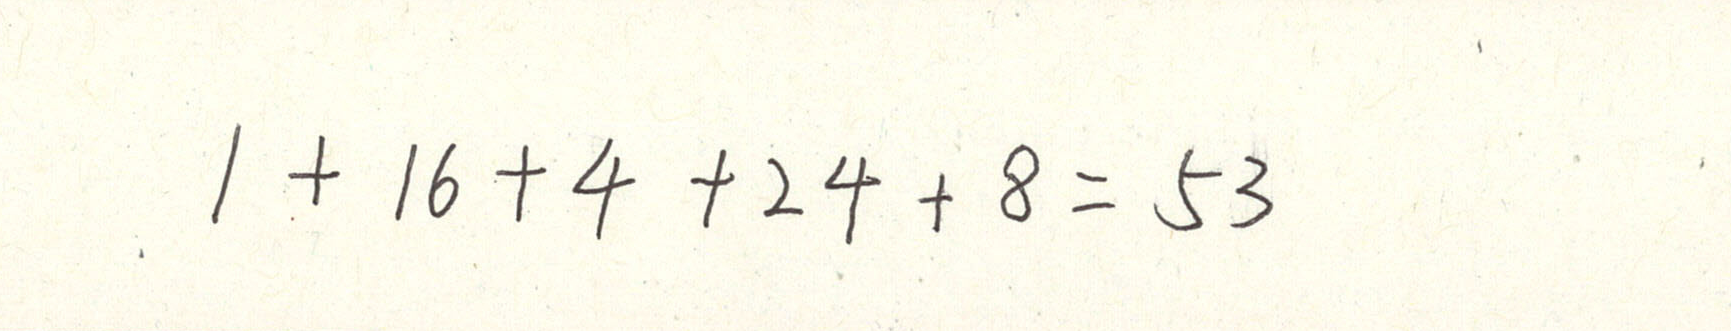 1 + 16 + 4 + 24 + 8 = 53